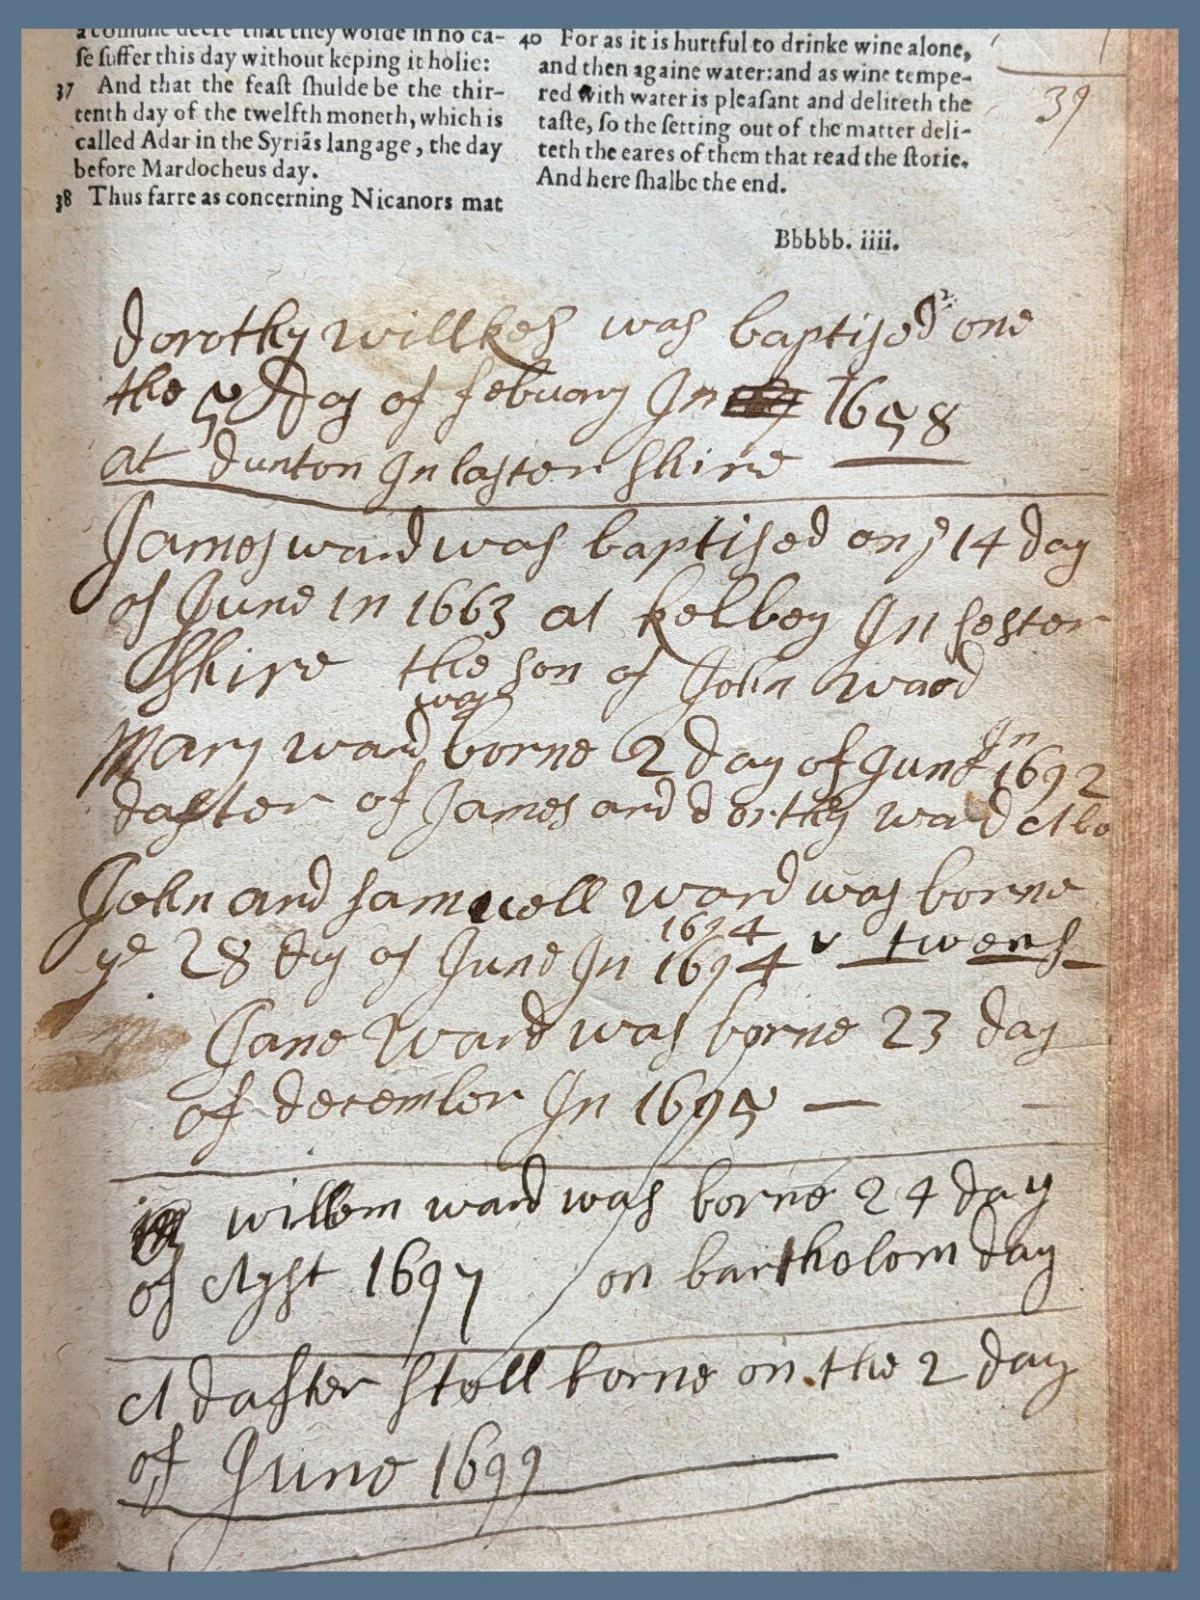 a comune decre that they wolde in no ca-
se suffer this day without keping it holie:
37 And that the feast shulde be the thir-
tenth day of the twelfth moneth, which is
called Adar in the Syriãs langage, the day
before Mardocheus day.
38 Thus farre as concerning Nicanors mat
40 For as it is hurtful to drinke wine alone,
and then againe water: and as wine tempe-
red with water is pleasant and deliteth the
taste, so the setting out of the matter deli-
teth the eares of them that read the storie.
And here shalbe the end.
Bbbbb. iiii.
39
dorothy willkes was baptised one
the 5 day of febuary In 1658
at dunton In laster shire
James ward was baptised on ye 14 day
of June in 1663 at kelbey In lester
shire the son of John ward
was
Mary ward borne 2 day of June In 1692
dafter of James and dorthy ward
John and samuell ward was borne
1694
ye 28 day of June In 1694 twens
Jane ward was borne 23 day
of december In 1695
willem ward was borne 24 day
of Agst 1697 on bartholom day
A dafter stell borne on the 2 day
of June 1699